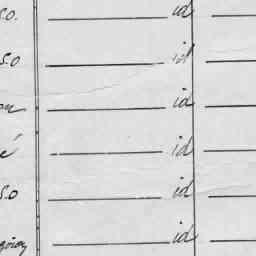 S.O. id
S.O id
id
é id
S.O id
id